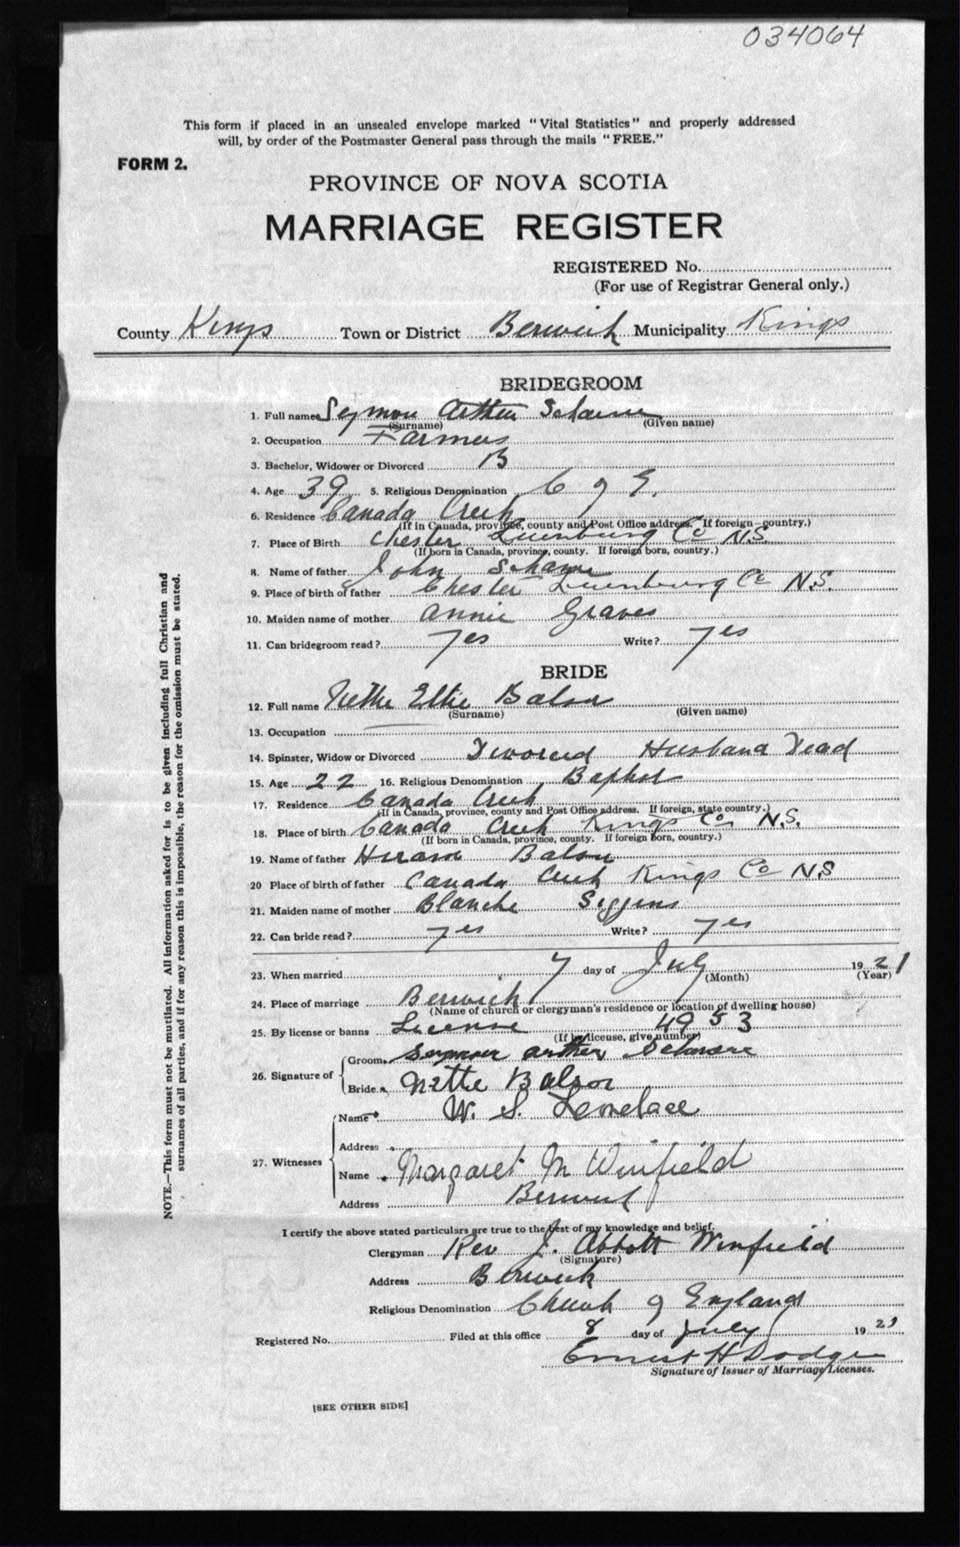 034064
This form if placed in an unsealed envelope marked "Vital Statistics" and properly addressed
will, by order of the Postmaster General pass through the mails "FREE."
FORM 2.
PROVINCE OF NOVA SCOTIA
MARRIAGE REGISTER
REGISTERED No.
(For use of Registrar General only.)
County Kings Town or District Berwick Municipality Kings
BRIDEGROOM
1. Full name Arthur
(Surname) (Given name)
2. Occupation Farmer
3. Bachelor, Widower or Divorced B
4. Age 39 5. Religious Denomination C of E.
6. Residence Canada Creek
(If in Canada, province, county and Post Office address. If foreign country.)
7. Place of Birth Chester Lunenburg Co N.S.
(If born in Canada, province, county. If foreign born, country.)
8. Name of father John
9. Place of birth of father Chester Lunenburg Co N.S.
10. Maiden name of mother Annie Graves
11. Can bridegroom read? Yes Write? Yes
BRIDE
12. Full name Nettie Balsor
(Surname) (Given name)
13. Occupation
14. Spinster, Widow or Divorced Divorced Husband Dead
15. Age 22 16. Religious Denomination Baptist
17. Residence Canada Creek
(If in Canada, province, county and Post Office address. If foreign, state country.)
18. Place of birth Canada Creek Kings Co. N.S.
(If born in Canada, province, county. If foreign born, country.)
19. Name of father Hiram Balsor
20 Place of birth of father Canada Creek Kings Co N.S
21. Maiden name of mother Blanche
22. Can bride read? yes Write? yes
23. When married 7 day of July 1921
(Month) (Year)
24. Place of marriage Berwick
(Name of church or clergyman's residence or location of dwelling house)
25. By license or banns License 4953
(If by license, give number)
26. Signature of
Groom Arther
Bride Nettie Balsor
27. Witnesses
Name W. S. Lovelace
Address
Name Margaret M Winfield
Address Berwick
I certify the above stated particulars are true to the best of my knowledge and belief.
Clergyman Rev J. Abbott Winfield
(Signature)
Address Berwick
Religious Denomination Church of England
Registered No. Filed at this office 8 day of July 1921
Ernest H Dodge
Signature of Issuer of Marriage Licenses.
[SEE OTHER SIDE]
NOTE.—This form must not be mutilated. All information asked for is to be given including full Christian and
surnames of all parties, and if for any reason this is impossible, the reason for the omission must be stated.